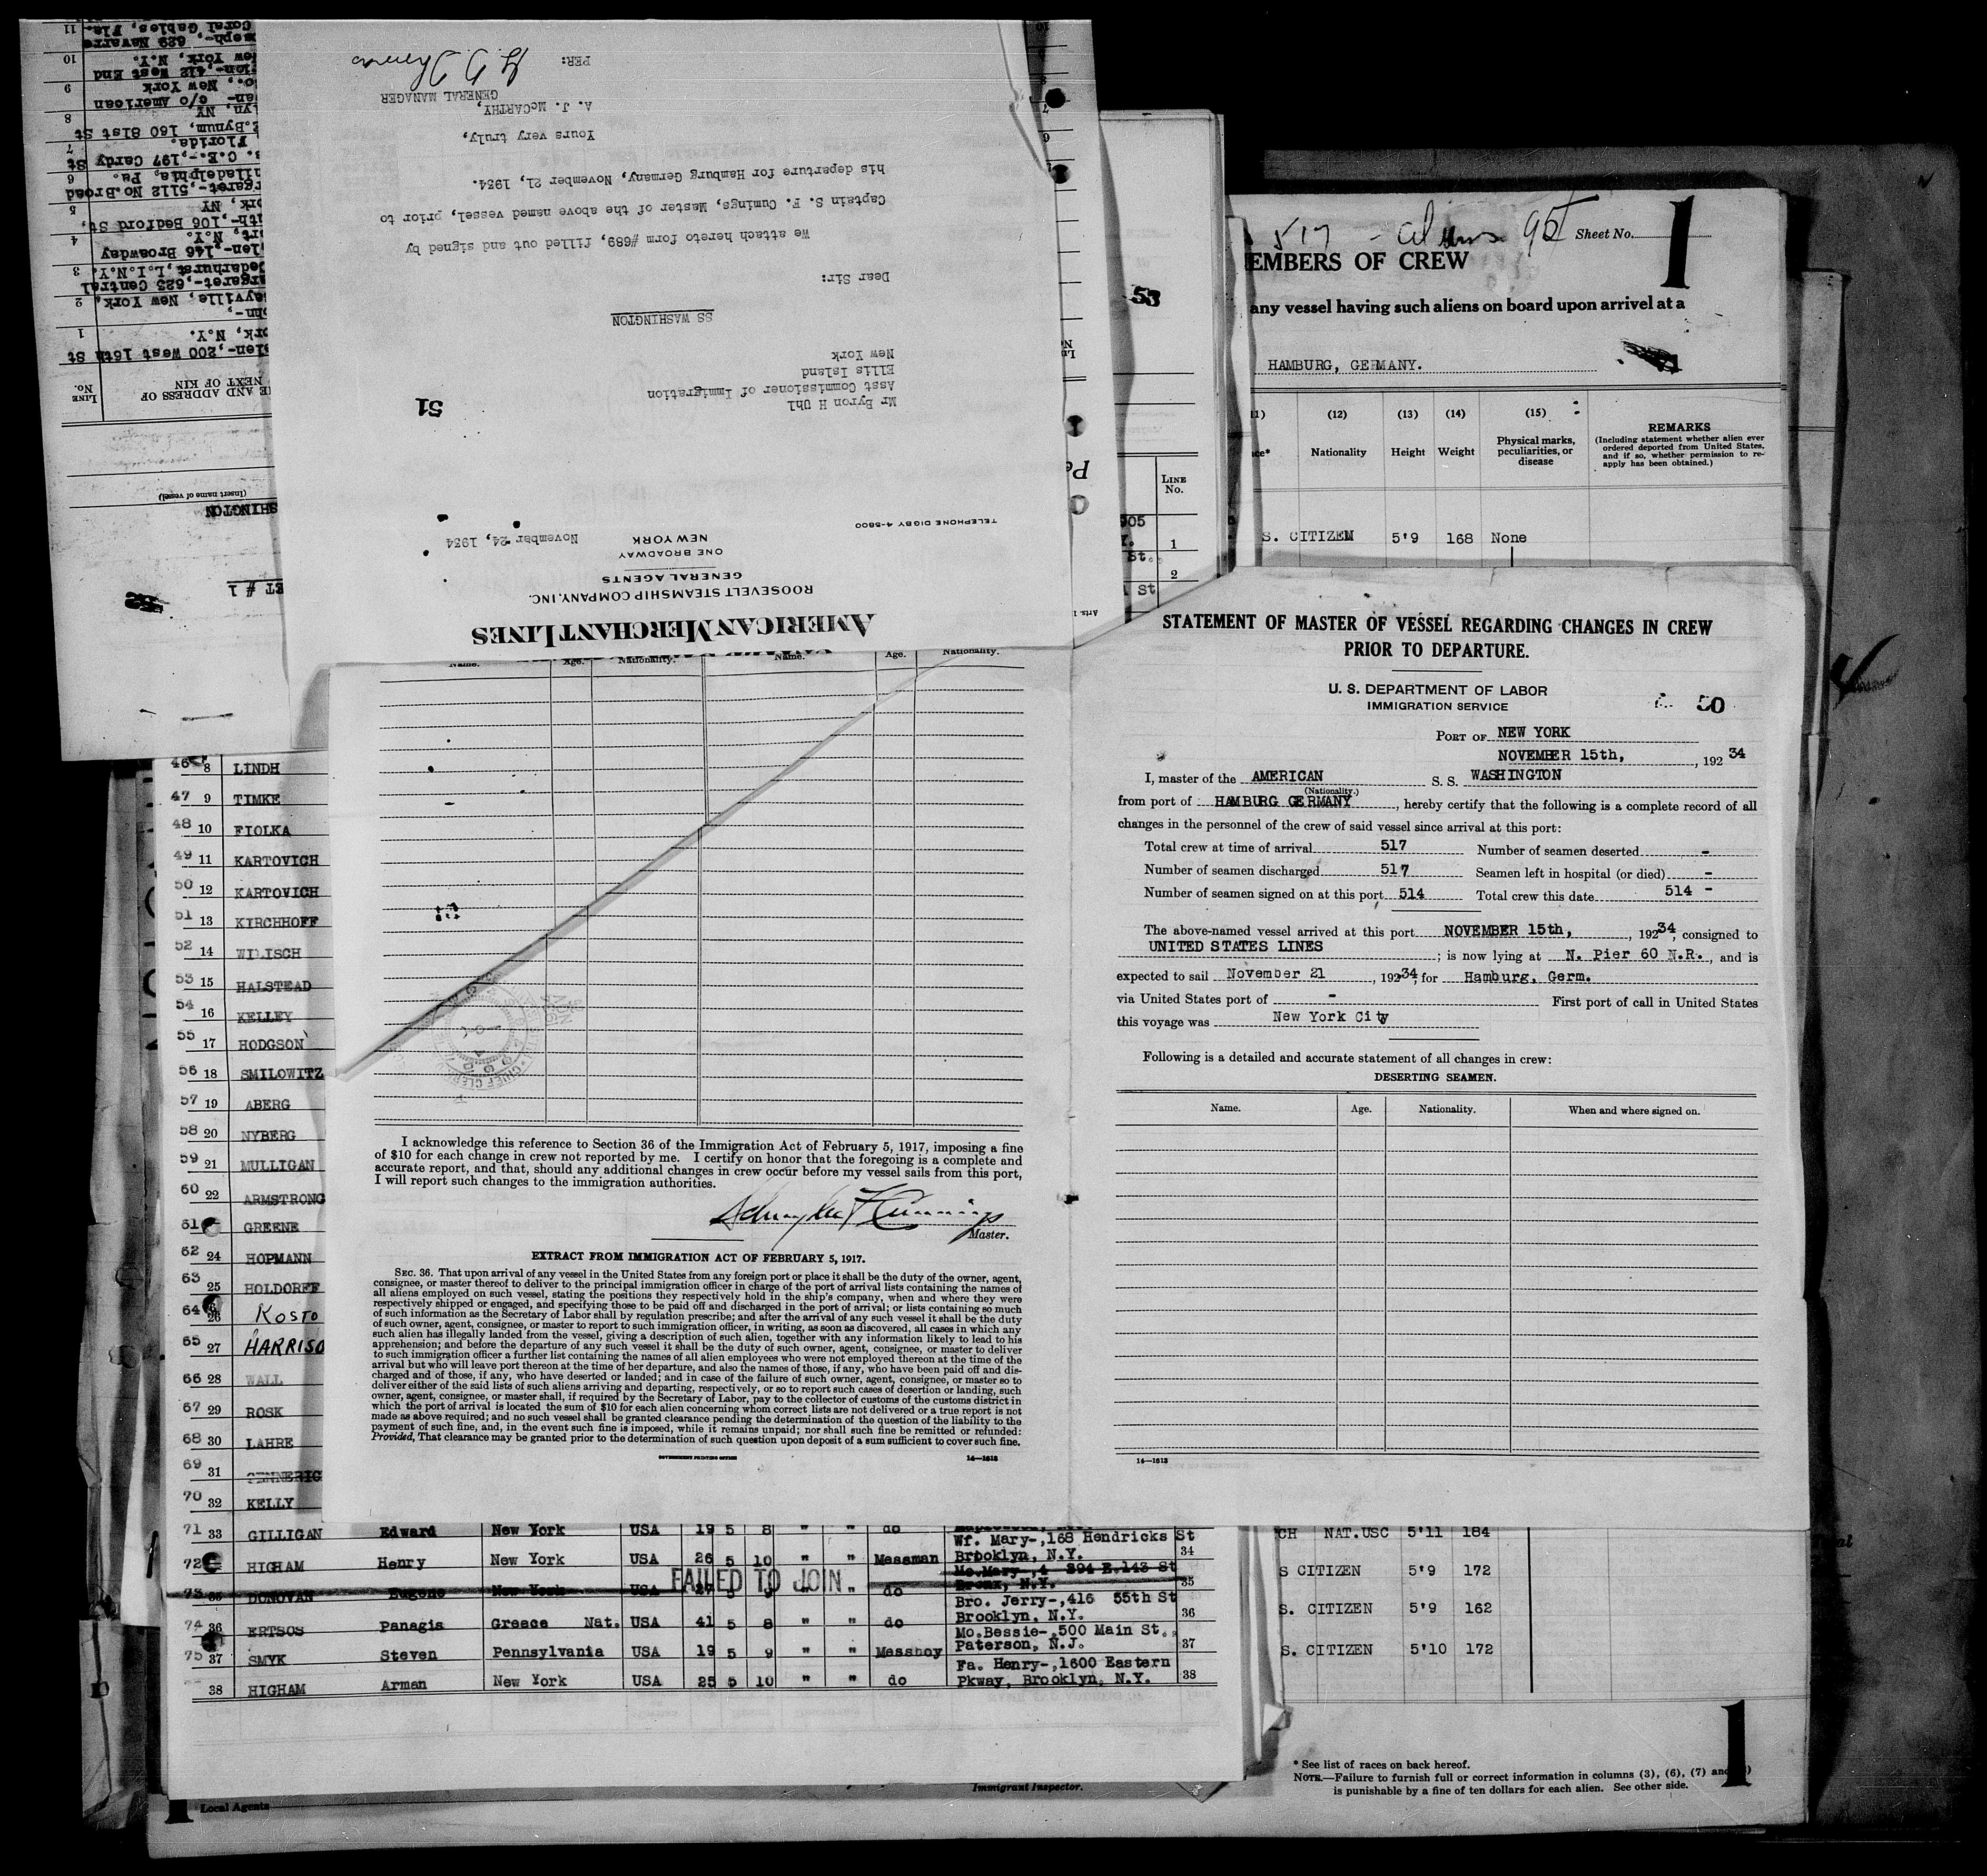 AMERICAN MERCHANT LINES
ROOSEVELT STEAMSHIP COMPANY, INC.
GENERAL AGENTS
ONE BROADWAY
NEW YORK
TELEPHONE DIGBY 4-5800
November 24, 1934
51
Mr Byron H Uhl
Asst Commissioner of Immigration
Ellis Island
New York
SS WASHINGTON
Dear Sir:
We attach hereto form #689, filled out and signed by
Captain S. F. Cumings, Master of the above named vessel, prior to
his departure for Hamburg Germany, November 21, 1934.
Yours very truly,
A. J. McCARTHY,
GENERAL MANAGER
PER:
ET #1
SHINGTON
(Insert name of vessel)
E AND ADDRESS OF
NEXT OF KIN
LINE
No.
len-,200 West 16th St
ork, N.Y. 1
hn-,
ayville, New York, 2
argaret-,623 Central
edarhurst,L.I.N.Y. 3
len-,146 Broawday
rt, N.Y. 4
ith-,106 Bedford St,
ork, NY 5
rgaret-,5112 No.Broad
iladelphia, Pa. 6
s. C.E.-,197 Cardy St
Florida. 7
E.Bynum, 160 81st St
lyn, NY 8
an- c/o American
o., New York 9
ion-,412 West End
ew York, N.Y. 10
seph-, 629 Navarre
Coral Gables, Fla. 11
53
LINE
No.
905
1
St.
2
St
517 - aliens 95
Sheet No. 1
EMBERS OF CREW
any vessel having such aliens on board upon arrival at a
HAMBURG, GERMANY.
(12) (13) (14) (15)
Nationality Height Weight Physical marks, peculiarities, or disease
REMARKS
(Including statement whether alien ever
ordered deported from United States,
and if so, whether permission to re-
apply has been obtained.)
S. CITIZEN 5'9 168 None
STATEMENT OF MASTER OF VESSEL REGARDING CHANGES IN CREW
PRIOR TO DEPARTURE.
U. S. DEPARTMENT OF LABOR
IMMIGRATION SERVICE
50
PORT OF NEW YORK
NOVEMBER 15th, , 192 34
I, master of the AMERICAN S. S. WASHINGTON
(Nationality.)
from port of HAMBURG GERMANY , hereby certify that the following is a complete record of all
changes in the personnel of the crew of said vessel since arrival at this port:
Total crew at time of arrival 517 Number of seamen deserted -
Number of seamen discharged 517 Seamen left in hospital (or died) -
Number of seamen signed on at this port 514 Total crew this date 514 -
The above-named vessel arrived at this port NOVEMBER 15th, , 19234, consigned to
UNITED STATES LINES ; is now lying at N. Pier 60 N.R. , and is
expected to sail November 21 , 19234, for Hamburg, Germ.
via United States port of - First port of call in United States
this voyage was New York City
Following is a detailed and accurate statement of all changes in crew:
DESERTING SEAMEN.
Name. Age. Nationality. When and where signed on.
14—1613
Name. Age. Nationality. Name. Age. Nationality.
I acknowledge this reference to Section 36 of the Immigration Act of February 5, 1917, imposing a fine
of $10 for each change in crew not reported by me. I certify on honor that the foregoing is a complete and
accurate report, and that, should any additional changes in crew occur before my vessel sails from this port,
I will report such changes to the immigration authorities.
Master.
EXTRACT FROM IMMIGRATION ACT OF FEBRUARY 5, 1917.
SEC. 36. That upon arrival of any vessel in the United States from any foreign port or place it shall be the duty of the owner, agent,
consignee, or master thereof to deliver to the principal immigration officer in charge of the port of arrival lists containing the names of
all aliens employed on such vessel, stating the positions they respectively hold in the ship's company, when and where they were
respectively shipped or engaged, and specifying those to be paid off and discharged in the port of arrival; or lists containing so much
of such information as the Secretary of Labor shall by regulation prescribe; and after the arrival of any such vessel it shall be the duty
of such owner, agent, consignee, or master to report to such immigration officer, in writing, as soon as discovered, all cases in which any
such alien has illegally landed from the vessel, giving a description of such alien, together with any information likely to lead to his
apprehension; and before the departure of any such vessel it shall be the duty of such owner, agent, consignee, or master to deliver
to such immigration officer a further list containing the names of all alien employees who were not employed thereon at the time of the
arrival but who will leave port thereon at the time of her departure, and also the names of those, if any, who have been paid off and dis-
charged and of those, if any, who have deserted or landed; and in case of the failure of such owner, agent, consignee, or master so to
deliver either of the said lists of such aliens arriving and departing, respectively, or so to report such cases of desertion or landing, such
owner, agent, consignee, or master shall, if required by the Secretary of Labor, pay to the collector of customs of the customs district in
which the port of arrival is located the sum of $10 for each alien concerning whom correct lists are not delivered or a true report is not
made as above required; and no such vessel shall be granted clearance pending the determination of the question of the liability to the
payment of such fine, and, in the event such fine is imposed, while it remains unpaid; nor shall such fine be remitted or refunded:
Provided, That clearance may be granted prior to the determination of such question upon deposit of a sum sufficient to cover such fine.
GOVERNMENT PRINTING OFFICE 14—1613
46 8 LINDH
47 9 TIMKE
48 10 FIOLKA
49 11 KARTOVICH
50 12 KARTOVICH
51 13 KIRCHHOFF
52 14 WILISCH
53 15 HALSTEAD
54 16 KELLEY
55 17 HODGSON
56 18 SMILOWITZ
57 19 ABERG
58 20 NYBERG
59 21 MULLIGAN
60 22 ARMSTRONG
61 GREENE
62 24 HOPMANN
63 25 HOLDORFF
64 26 KOSTO
65 27 HARRISO
66 28 WALL
67 29 ROSK
68 30 LAHRE
69 31
70 32 KELLY
71 33 GILLIGAN Edward New York USA 19 5 8 " " do
72 HIGHAM Henry New York USA 26 5 10 " " Messman Wf. Mary-,168 Hendricks St Brooklyn, N.Y. 34
73 35 DONOVAN Eugene New York USA 27 5 9 " do Mo.Mary-, 394 E.143 St Bronx, N.Y. 35
FAILED TO JOIN
74 36 ERTSOS Panagis Greece Nat. USA 41 5 8 " " do Bro. Jerry-,416 55th St Brooklyn, N.Y. 36
75 37 SMYK Steven Pennsylvania USA 19 5 9 " " Messboy Mo.Bessie-,500 Main St., Paterson, N.J. 37
38 HIGHAM Arman New York USA 25 5 10 " " do Fa. Henry-,1600 Eastern Pkway, Brooklyn, N.Y. 38
CH NAT.USC 5'11 184
S CITIZEN 5'9 172
S. CITIZEN 5'9 162
S. CITIZEN 5'10 172
* See list of races on back hereof.
NOTE.—Failure to furnish full or correct information in columns (3), (6), (7) and
is punishable by a fine of ten dollars for each alien. See other side.
1
Immigrant Inspector.
Local Agents